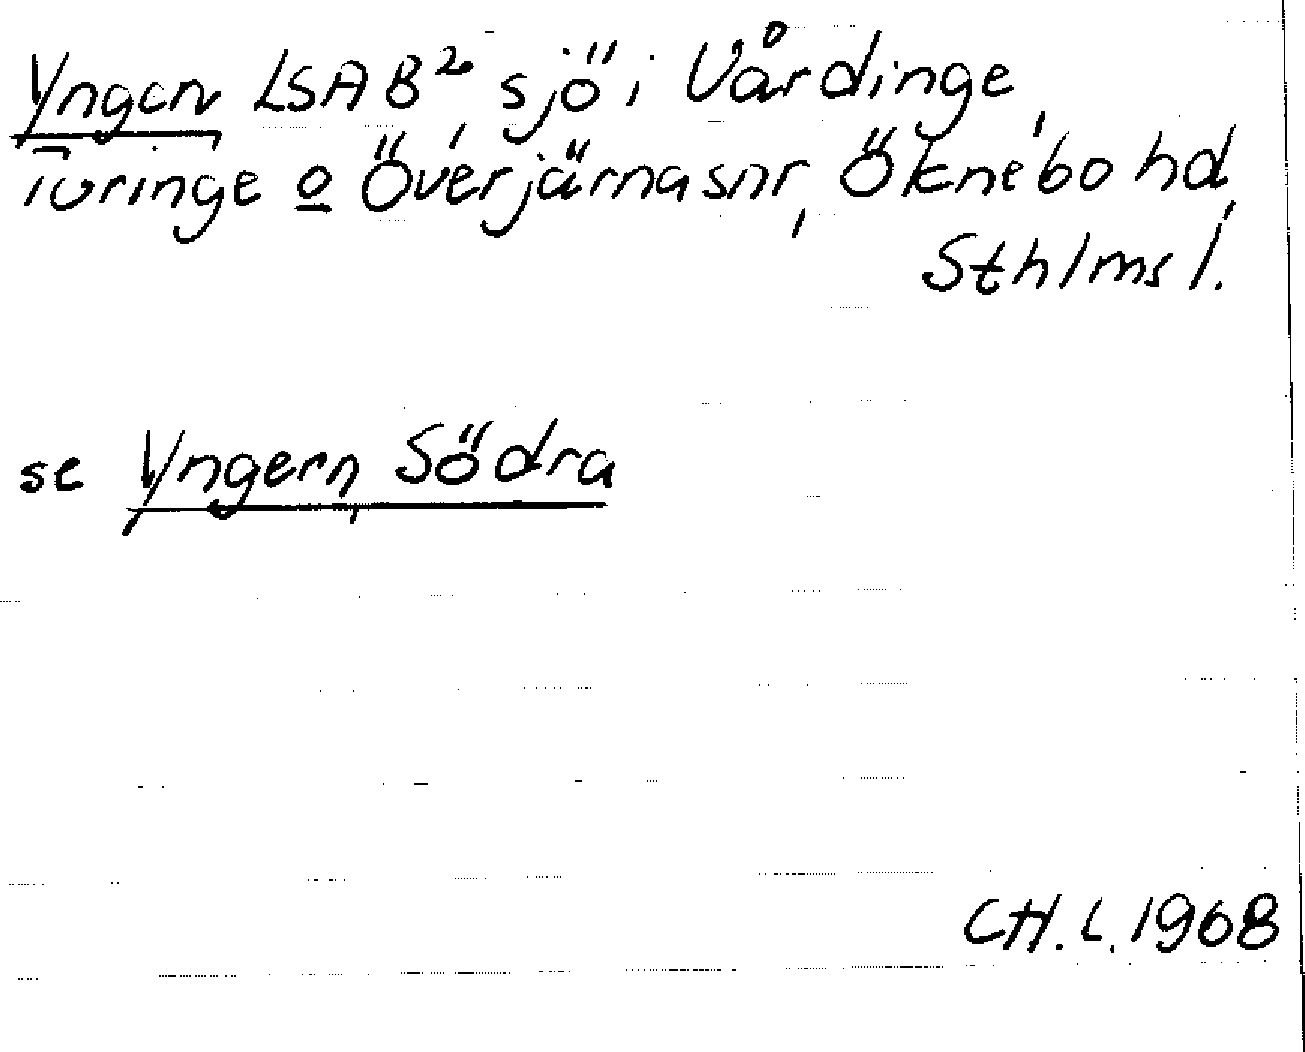 Yngern LSAB² sjö i Vårdinge,
Turinge o Överjärna snr, Öknebo hd,
Sthlms l.
se Yngern, Södra
CH.L. 1968